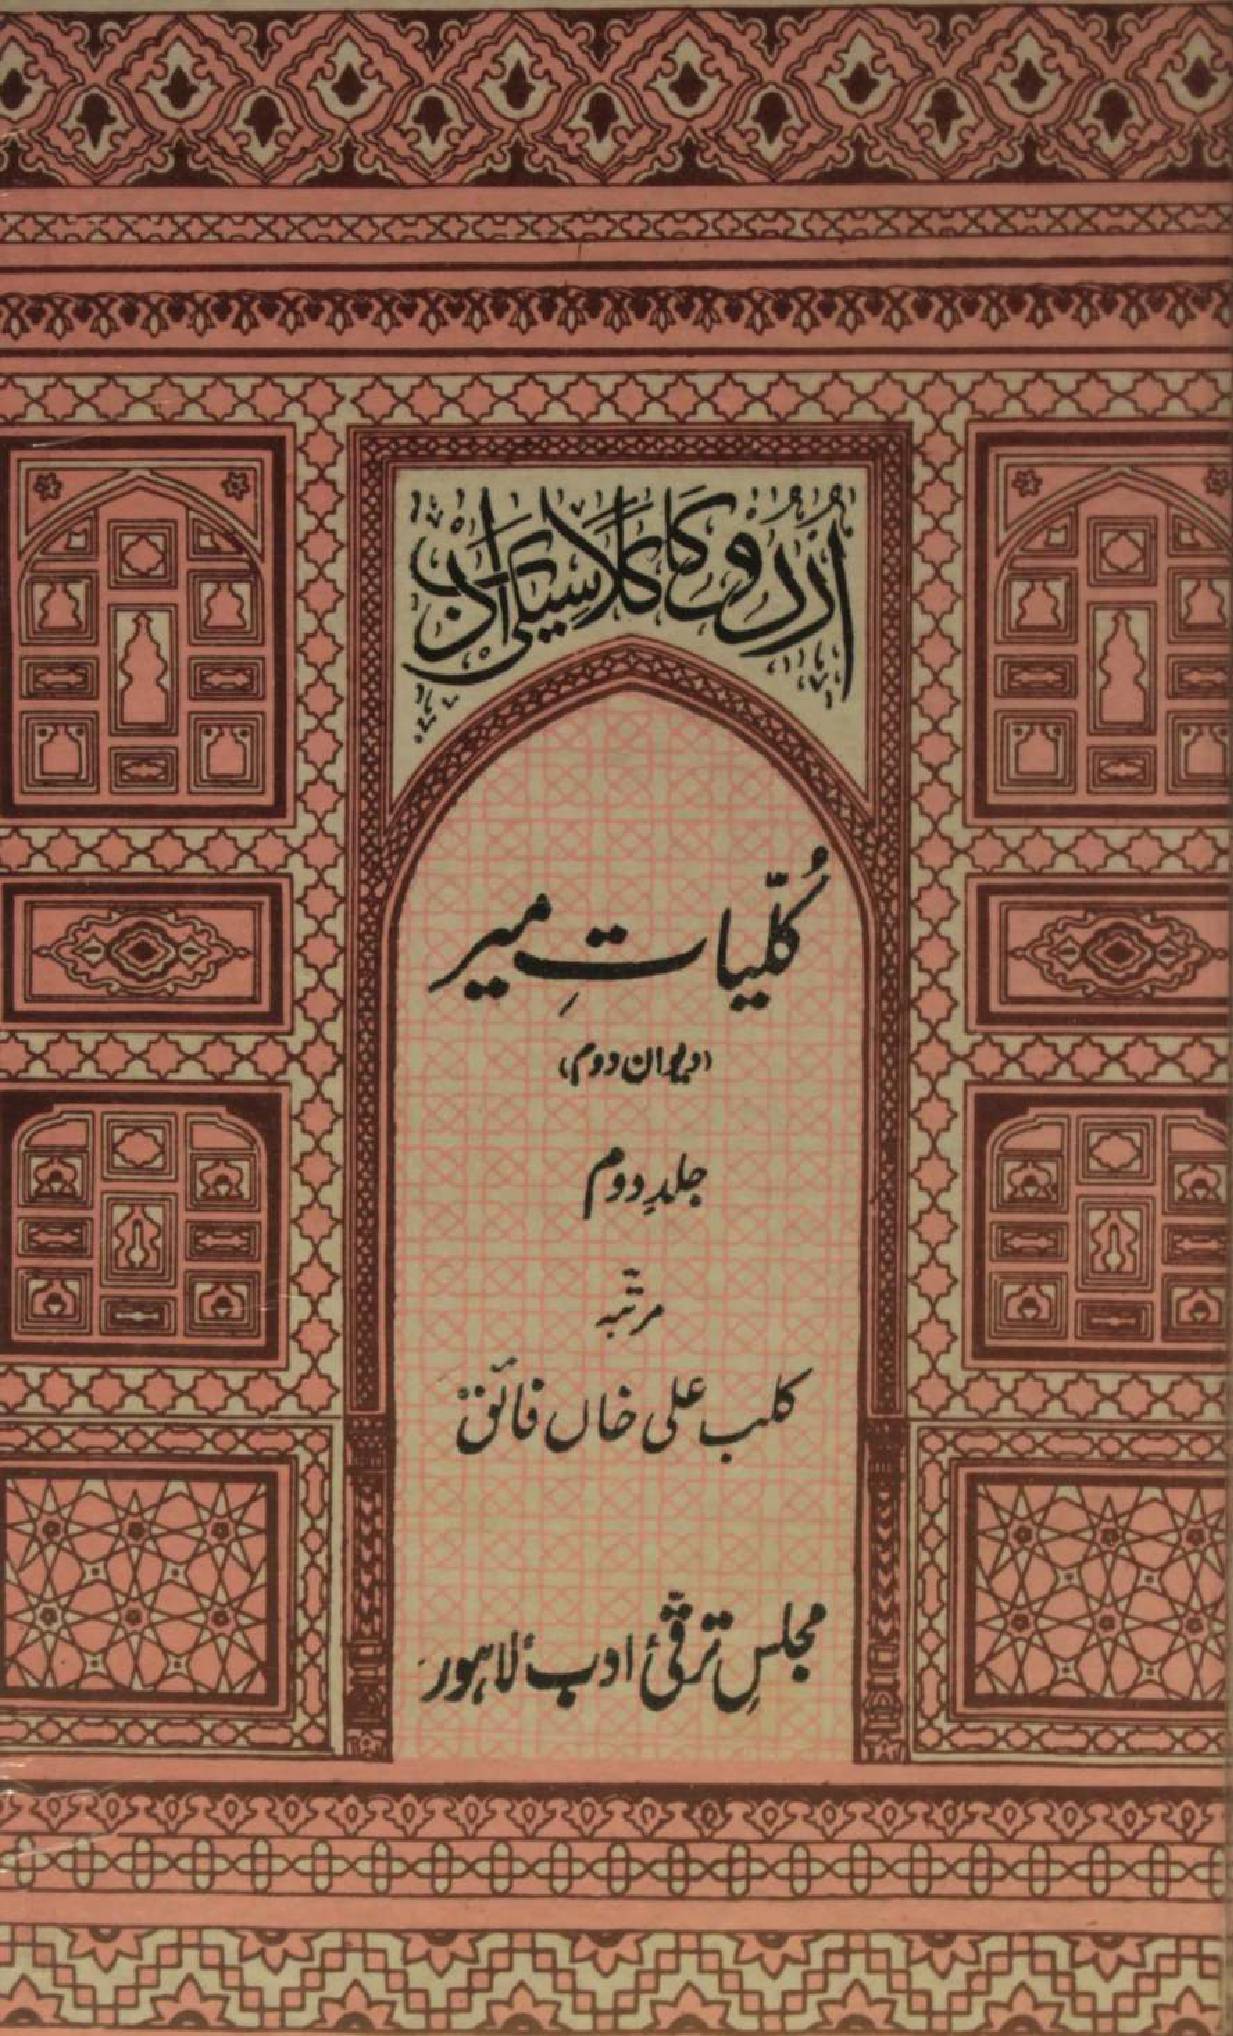 اُردُو کا کلاسیکی ادب
کُلّیاتِ میر
(دیوان دوم)
جلدِ دوم
مرتّبہ
کلب علی خاں فائق
مجلسِ ترقّیٔ ادب، لاہور